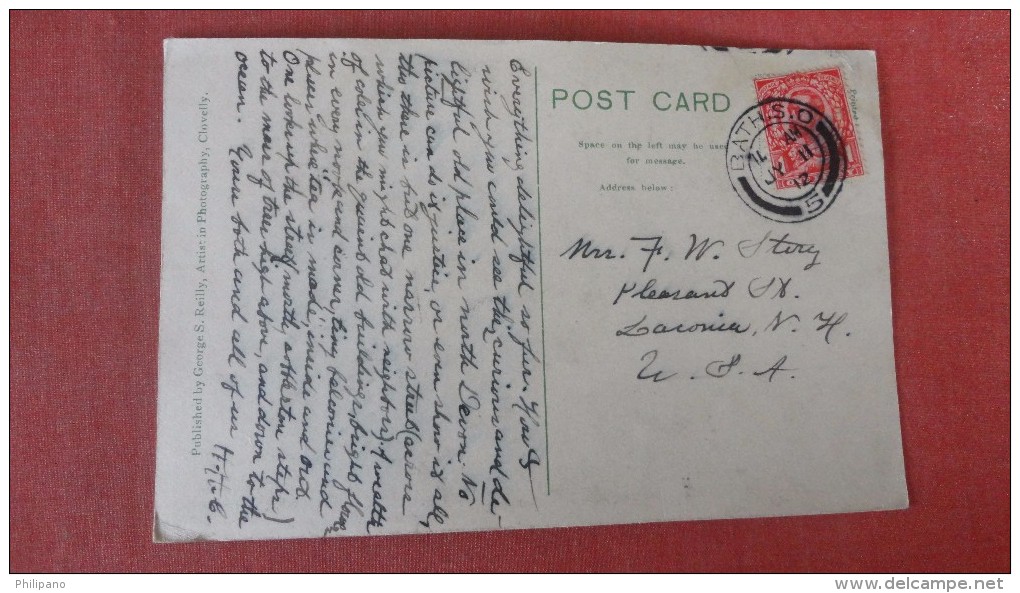 Everything delightful so far. How I
wish you could see this curious and de-
lightful old place in north Devon. No
picture can do it justice, or even show it all,
tho there is but one narrow street (across
which you might chat with neighbors). A wealth
of color in the quaint old buildings, bright flowers
in every nook and corner, tiny balconies and
places where tea is made, inside and out.
One looks up the street (north
to the mass of trees high above, and down to the
ocean. Yours both and all of us
Published by George S. Reilly, Artist in Photography, Clovelly.
POST CARD
Space on the left may be used
for message.
Address below:
BATH. S.O
AM
JY 11
12
5
Mrs. F. W. Story
Pleasant St.
Laconia, N. H.
U. S. A.
Philipano
www.delcampe.net